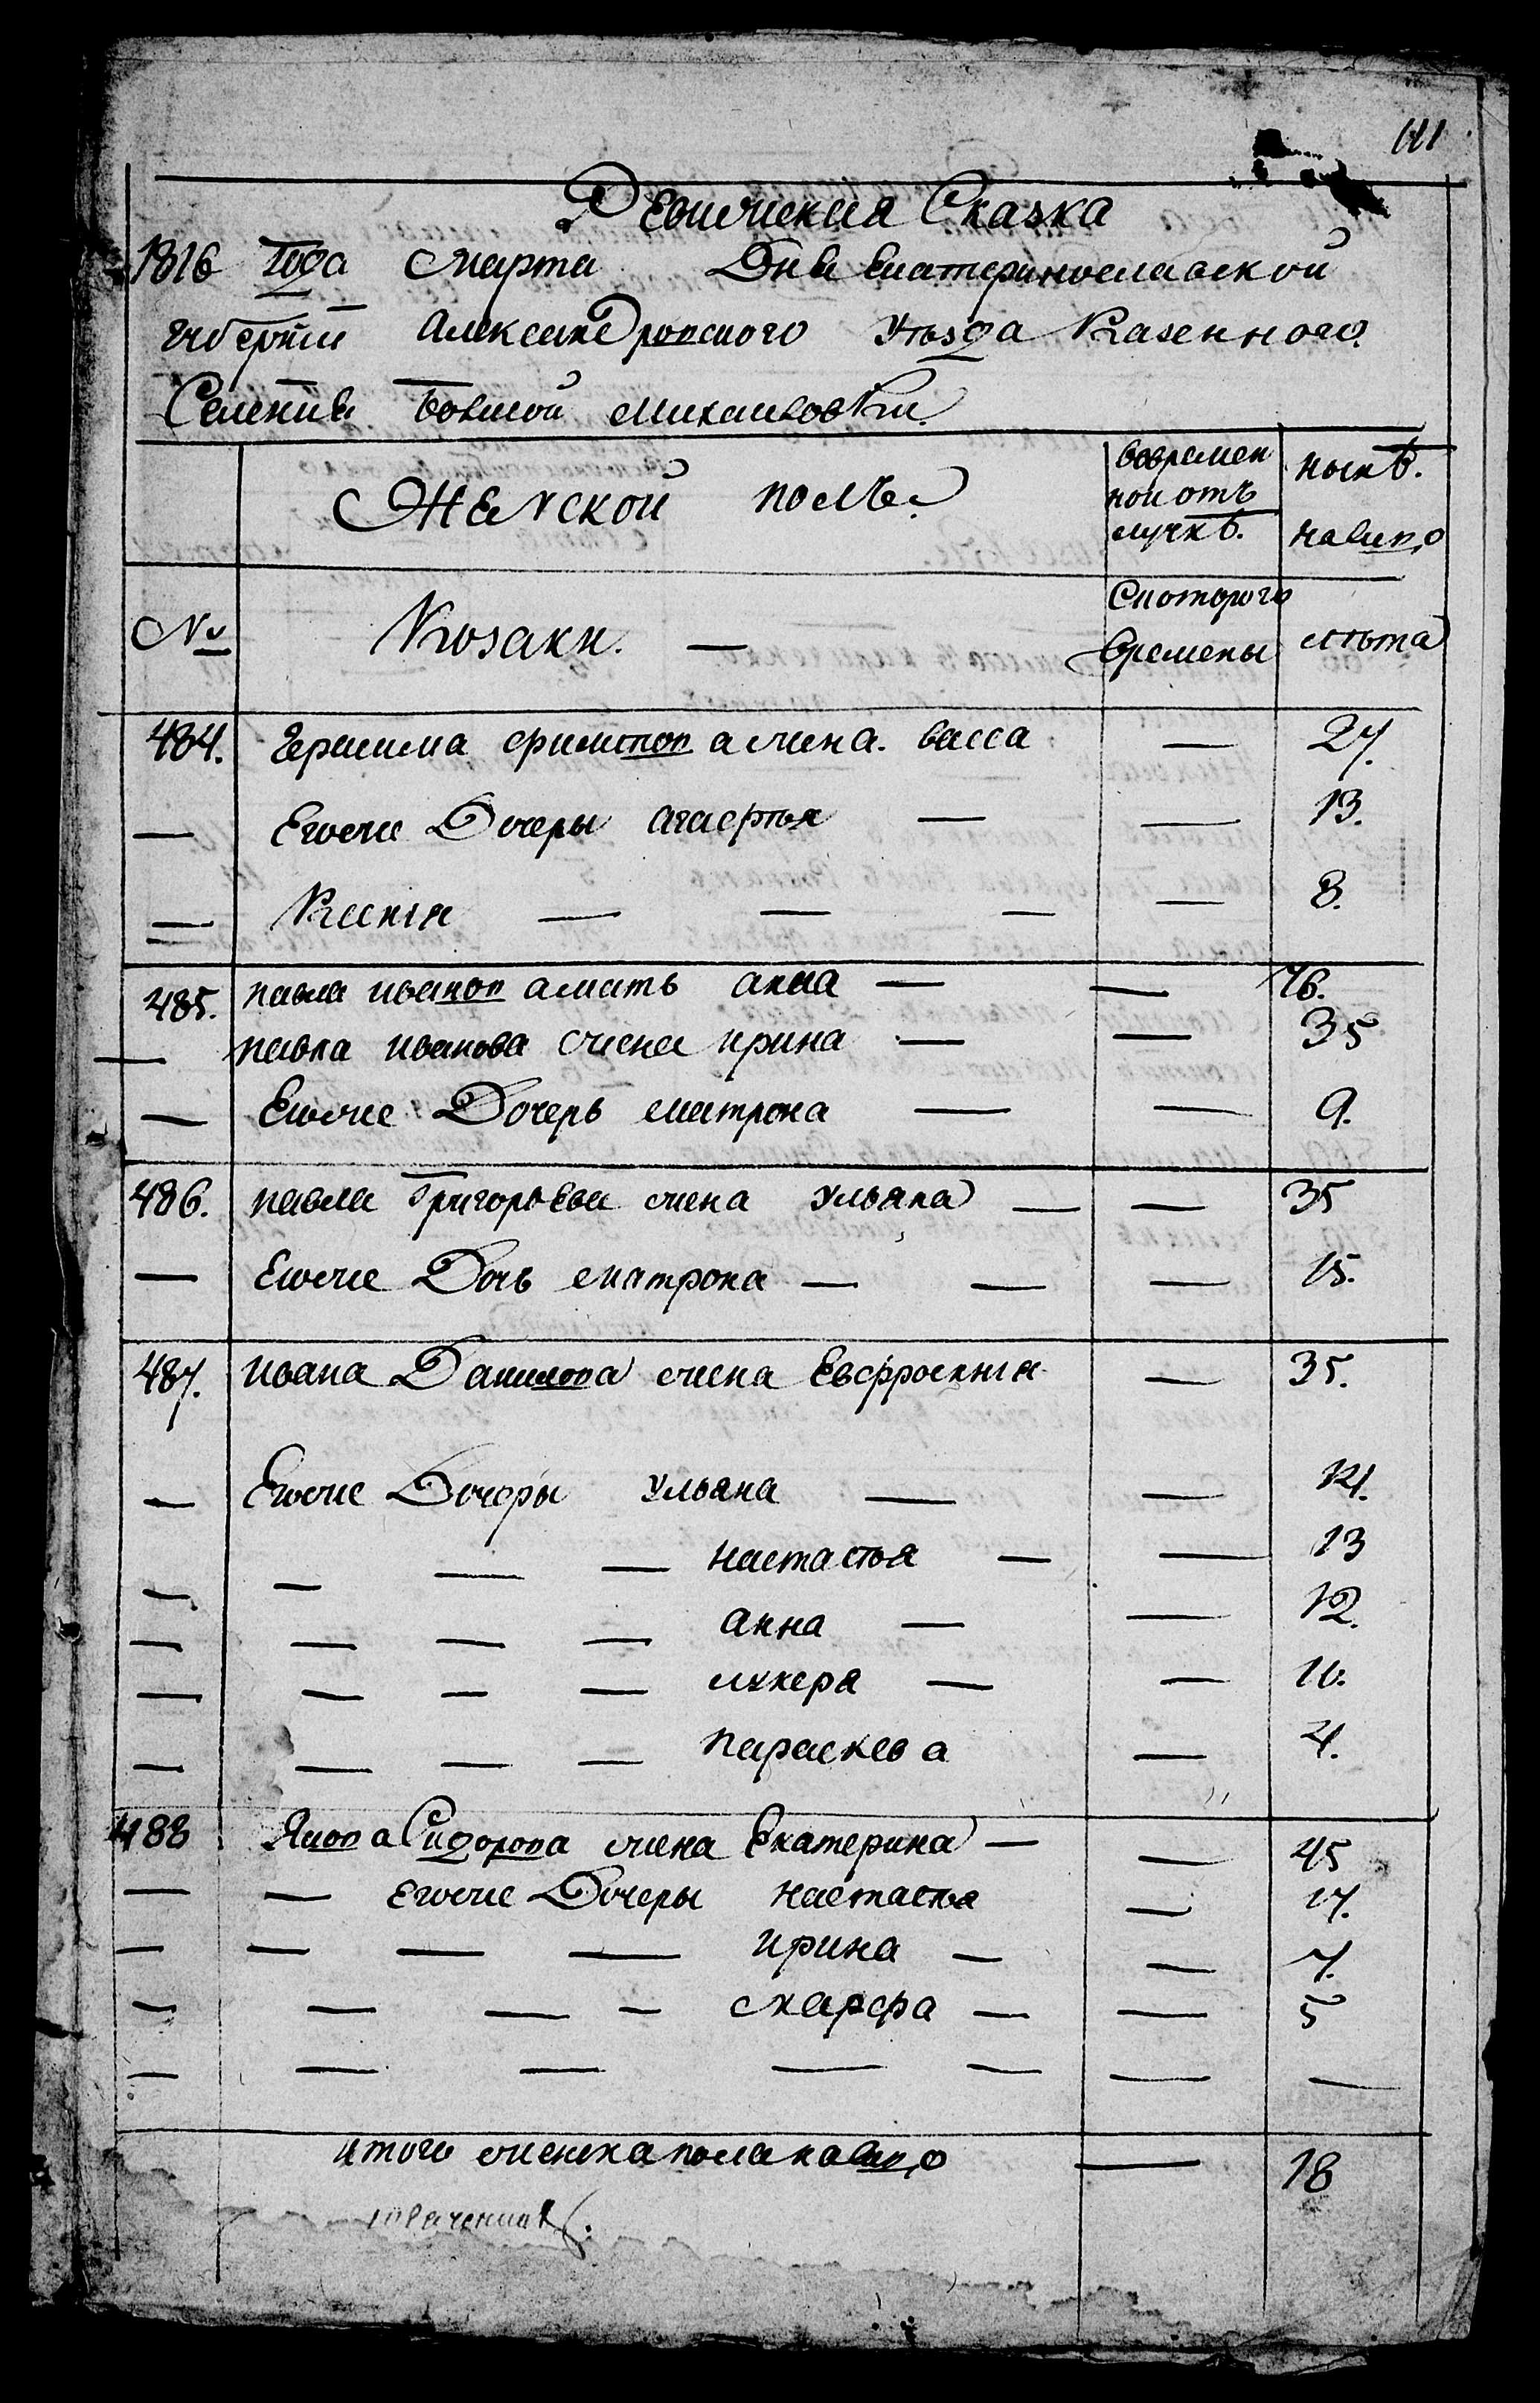 111
Ревижская Сказка
1816 года Марта Дня Екатеринославской
губернии Александровского уѣзда Казенного
Селения Большой Михаиловки
Женской полъ.
вовремен
ной отъ
лучкѣ.
нынѣ.
налицо
№
Козаки. —
Скоторого
времены
лѣта
484. Герасима Филипова жена. васса — 27.
— Егоже Дочеры Агафья — — 13.
— Ксенія — — — — 8.
485. павла иванова мать анна — — 76.
— павла иванова жена ирина — — 35
— Егоже Дочерь матрона — — 9.
486. павла Григорьева жена Ульяна — — 35
— Егоже Дочь матрона — — — 15.
487. ивана Данилова жена Евфросинія — 35.
— Егоже Дочеры Ульяна — — 14.
— — — — настасья — — 13
— — — — анна — — 12.
— — — — лукера — — 10.
— — — — параскева — 4.
488 Якова Сидорова жена Екатерина — — 45
— — Егоже Дочеры настасья — 17.
— — — — ирина — — 7.
— — — — марфа — — 5
— — — — — — —
итого женска пола налицо — 18